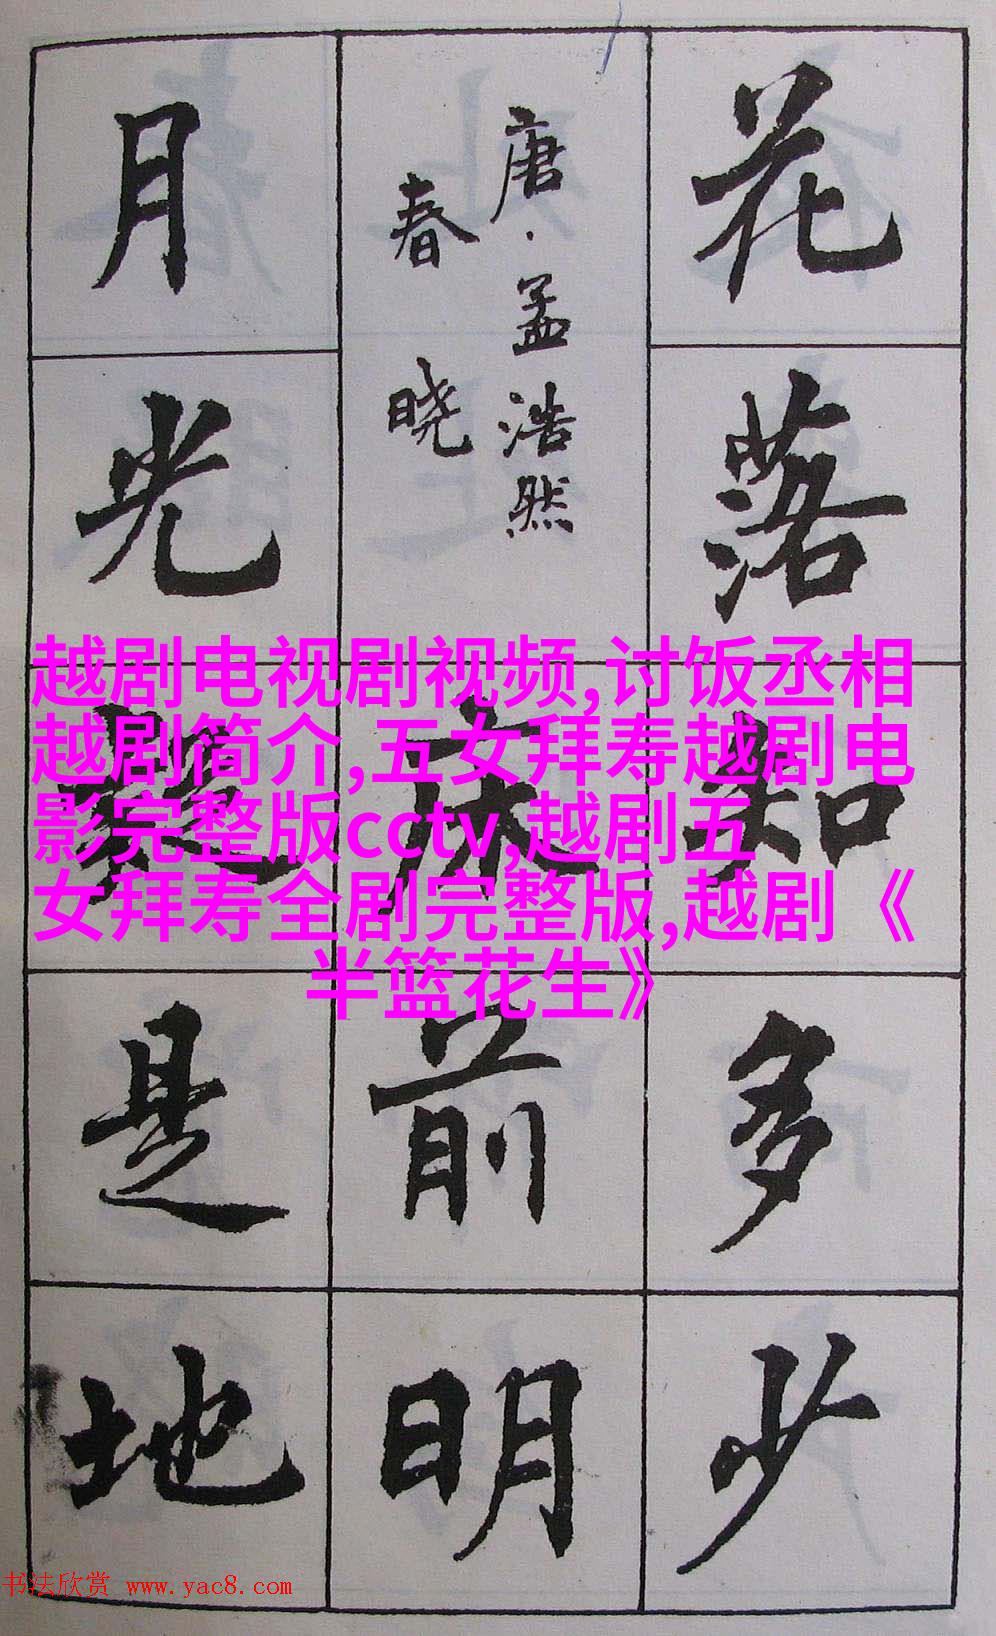 花落知多少
唐·孟浩然
春晓
床前明
月光疑是地
越剧电视剧视频,讨饭丞相
越剧简介,五女拜寿越剧电
影完整版cctv,越剧五
女拜寿全剧完整版,越剧《
半篮花生》
书法欣赏 www.yac8.com